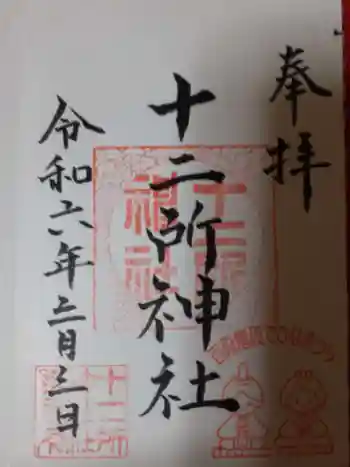 奉拝
十二所神社
令和六年三月三日
十二所神社